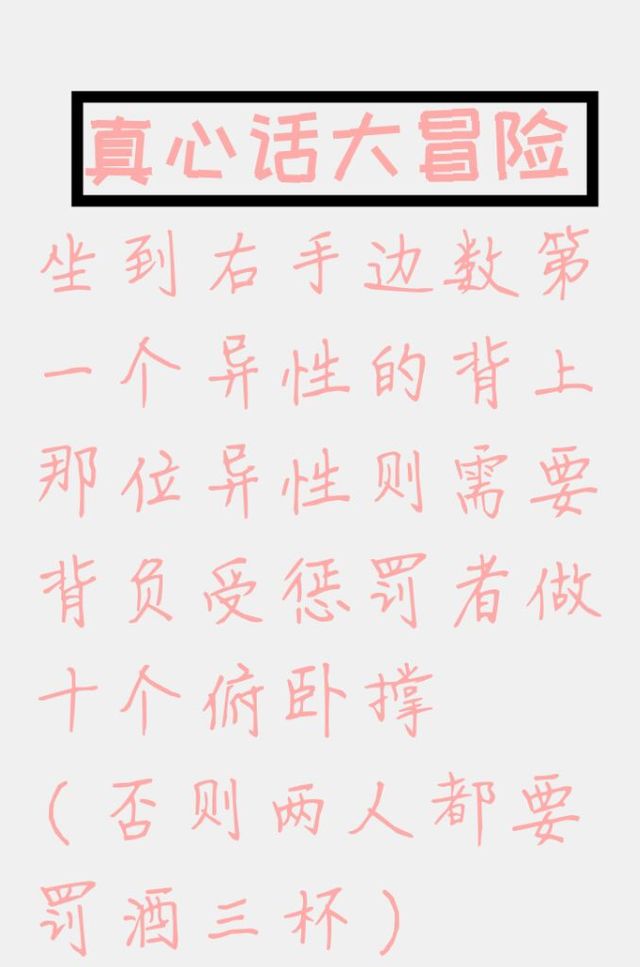 真心话大冒险
坐到右手边数第
一个异性的背上
那位异性则需要
背负受惩罚者做
十个俯卧撑
(否则两人都要
罚酒三杯)